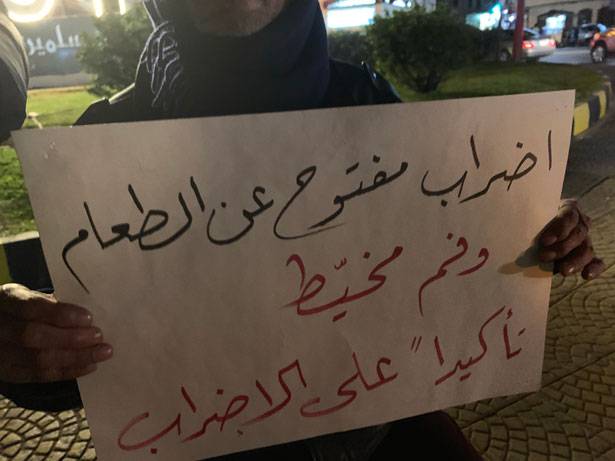 اضراب مفتوح عن الطعام
وفم مخيّط
تأكيداً على الاضراب